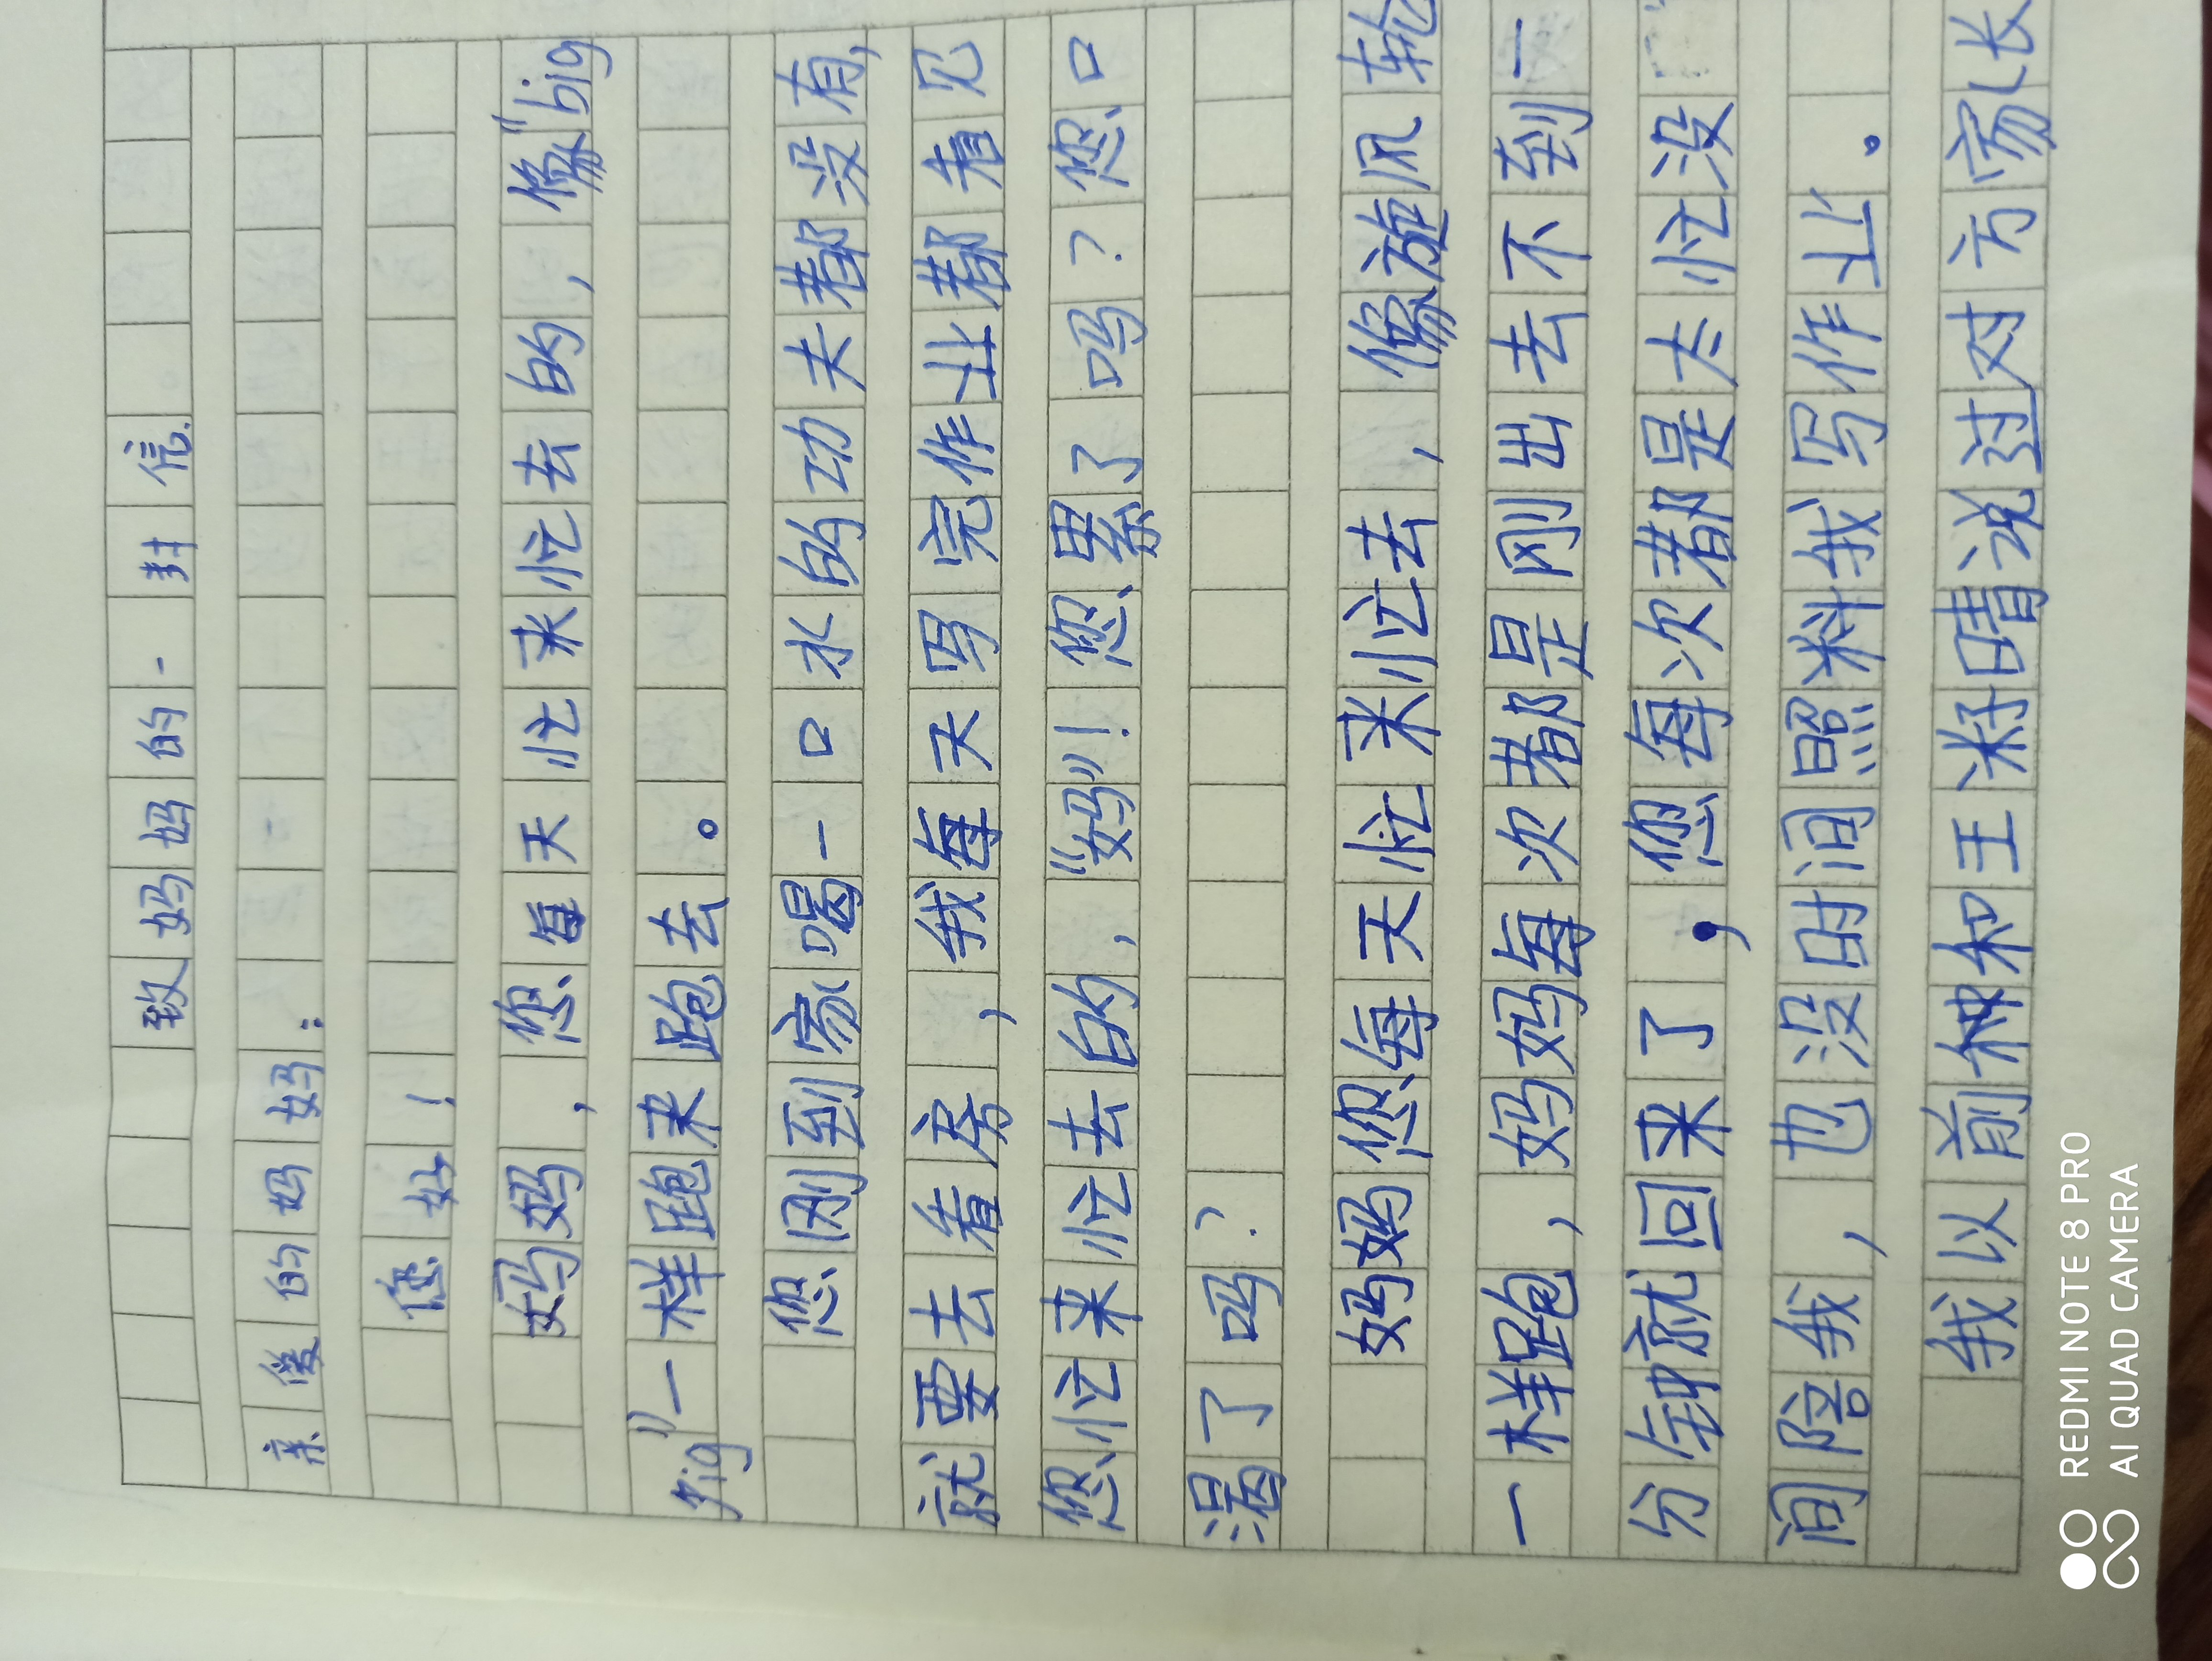 致妈妈的一封信
亲爱的妈妈：
您好！
妈妈，您每天忙来忙去的，像"big
pig"一样跑来跑去。
您刚到家喝一口水的功夫都没有，
就要去看房，我每天写完作业都看见
您忙来忙去的，"妈"！您累了吗？您口
渴了吗？
妈妈您每天忙来忙去，像旋风轮
一样跑，妈妈每次都是刚出去不到一
分钟就回来了，您每次都是大忙没
间陪我，也没时间照料我写作业。
我以前种和王籽晴说过对方家长
REDMI NOTE 8 PRO
AI QUAD CAMERA